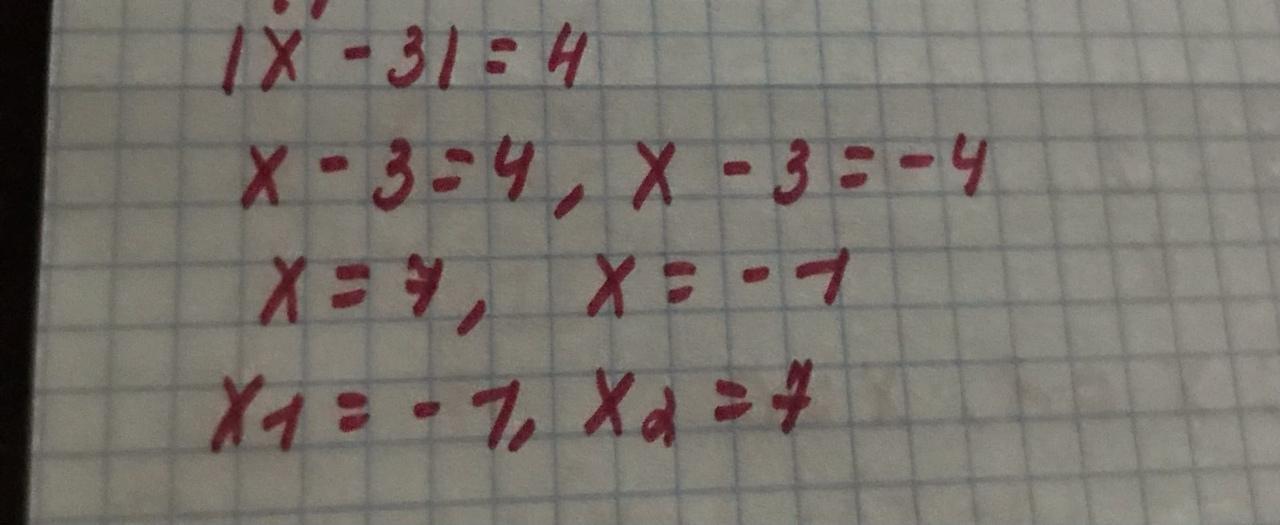 |x - 3| = 4
x - 3 = 4, x - 3 = -4
x = 7, x = -1
x1 = -1, x2 = 7